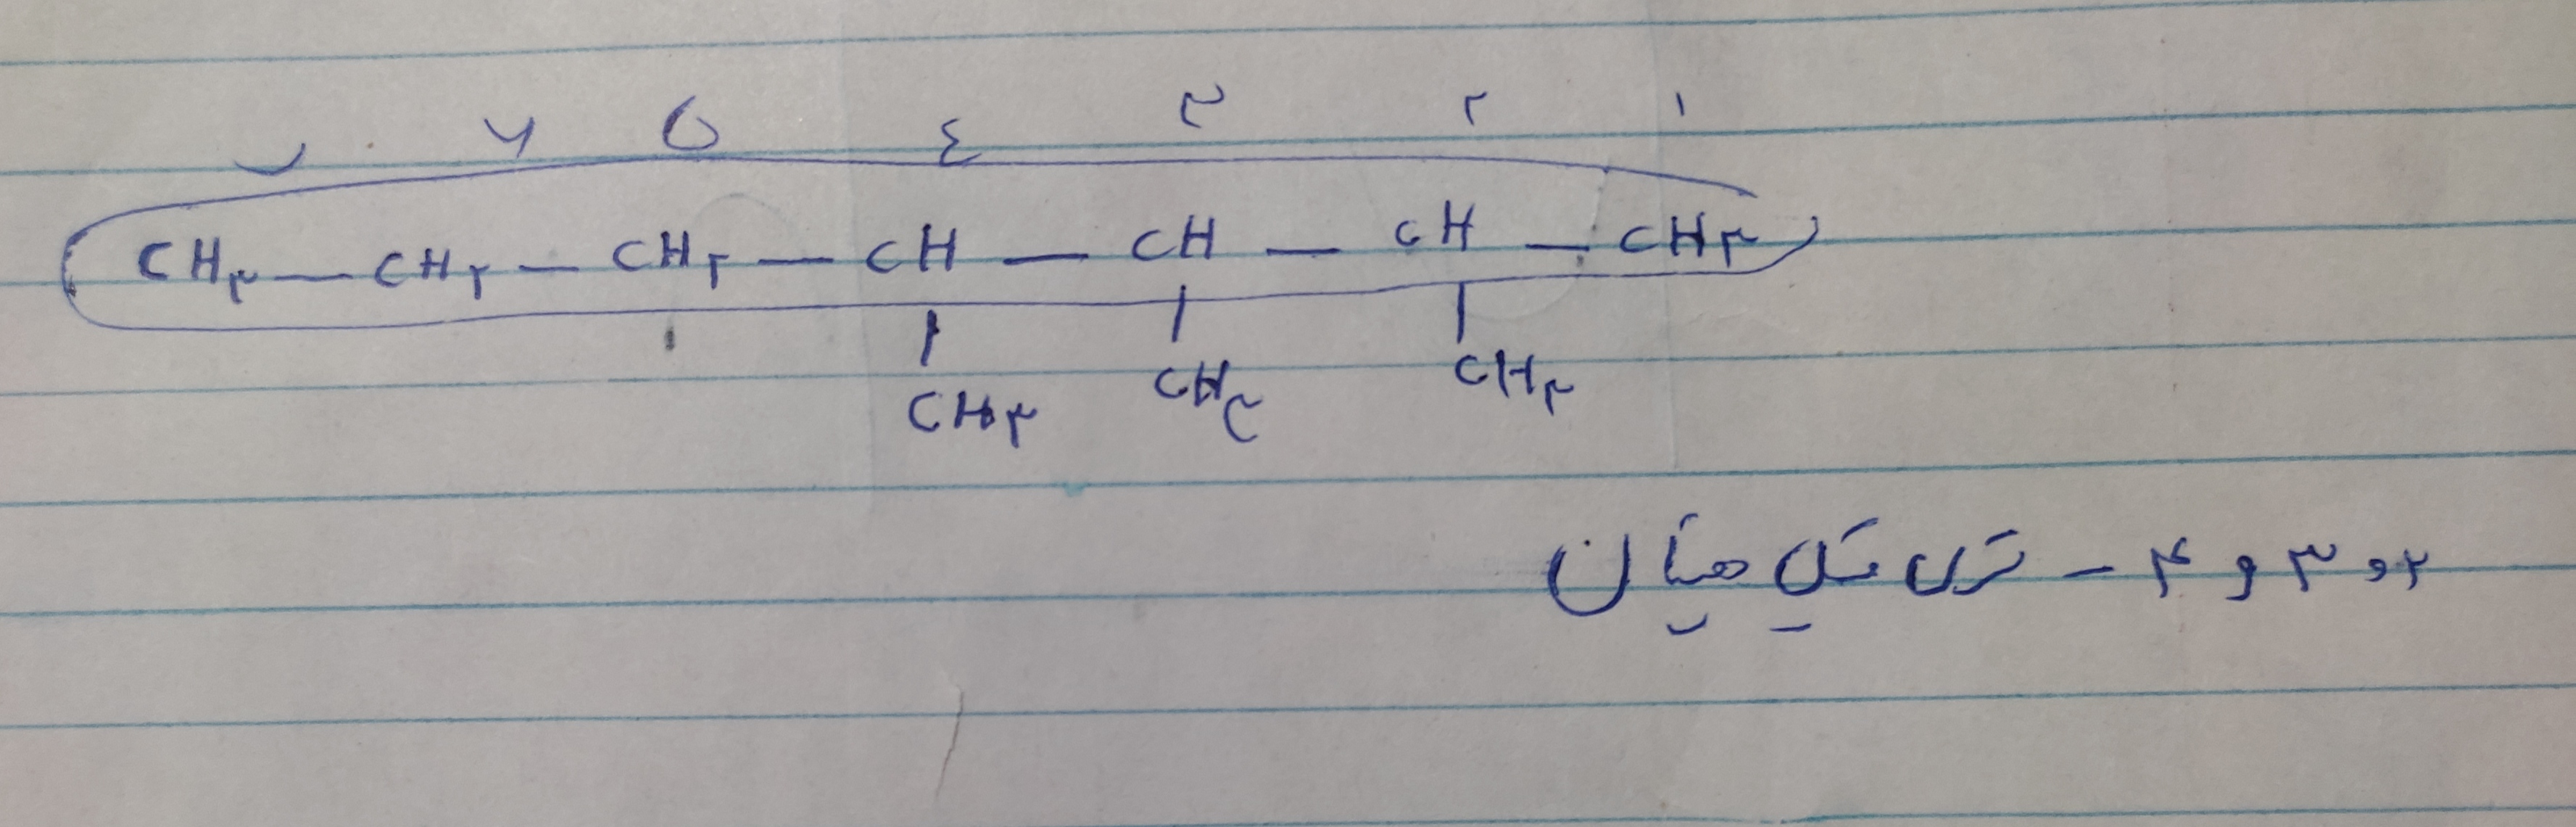 ۷ ۶ ۵ ٤ ۳ ۲ ۱
CH۳ — CH۲ — CH۲ — CH — CH — CH — CH۳
CH۳ CH۳ CH۳
۲ و ۳ و ۴ - تری متیل هپتان